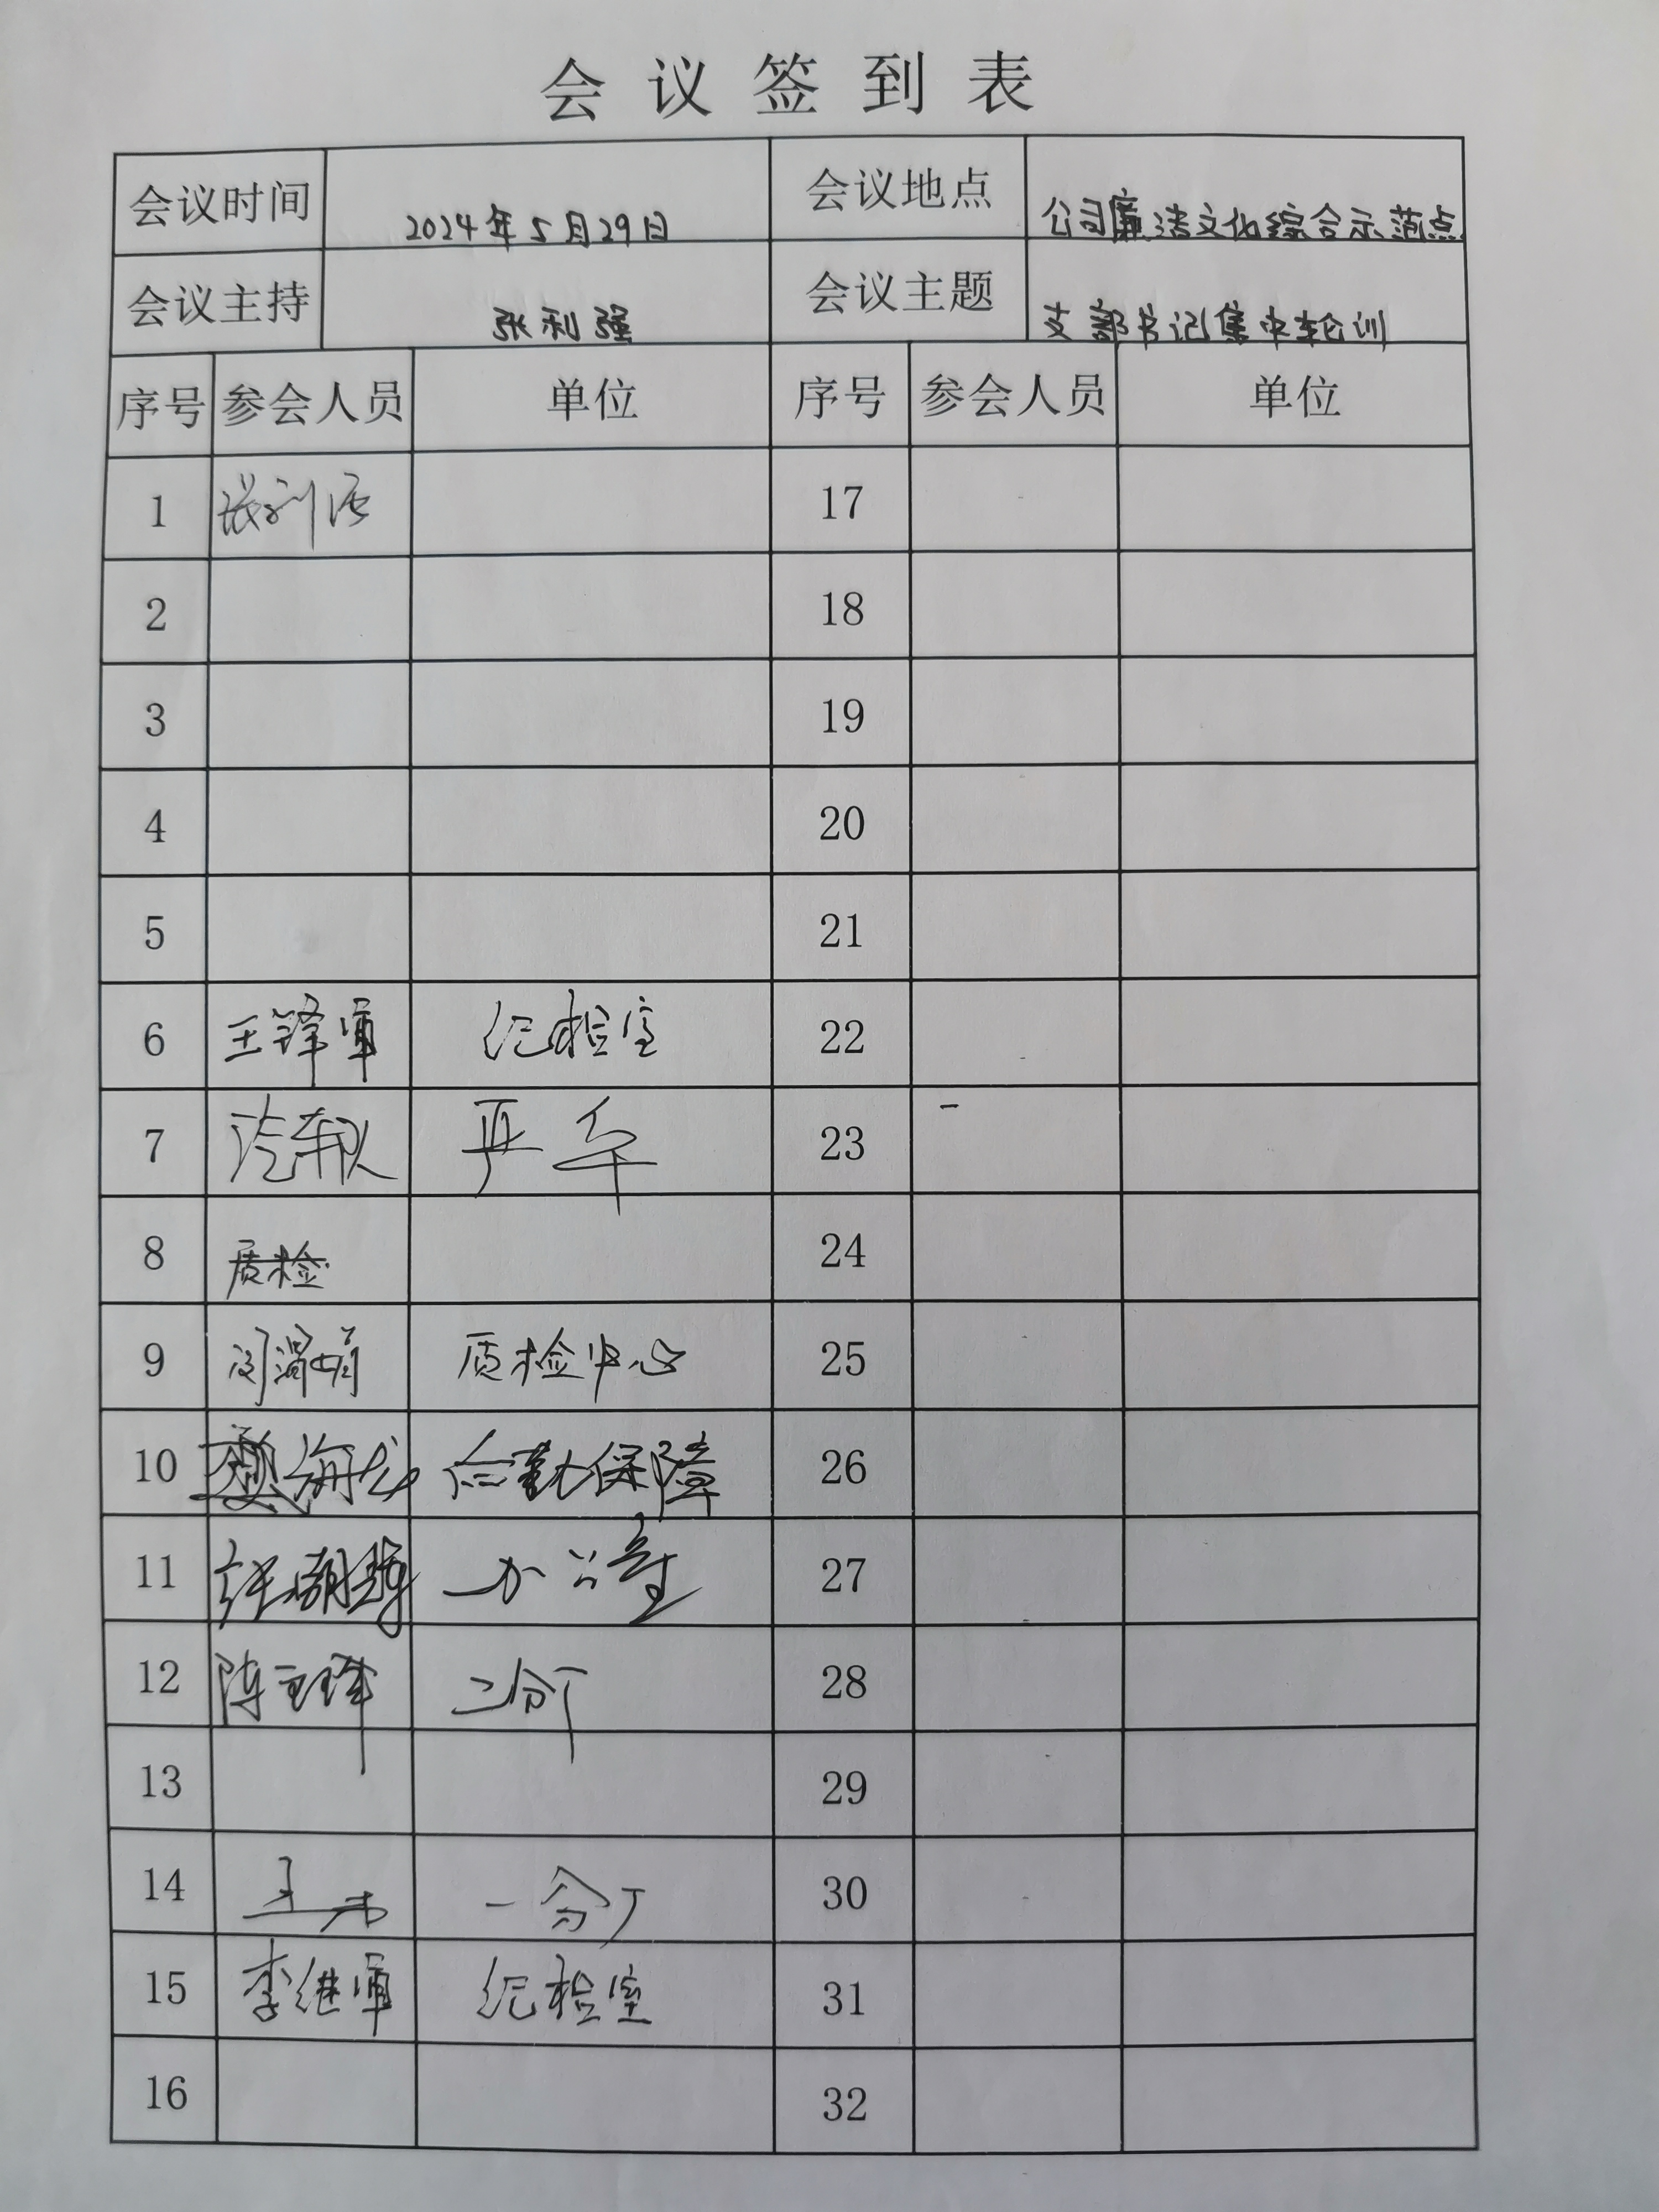 会议签到表
会议时间 2024年5月29日 会议地点 公司廉洁文化综合示范点
会议主持 张利强 会议主题 支部书记集中轮训
序号 参会人员 单位 序号 参会人员 单位
1 张利强 17
2 18
3 19
4 20
5 21
6 王锋军 纪检室 22
7 汽车队 严军 23
8 质检 24
9 质检中心 25
10 海龙 后勤保障 26
11 办公室 27
12 陈 二分厂 28
13 29
14 王 一分厂 30
15 李继军 纪检室 31
16 32